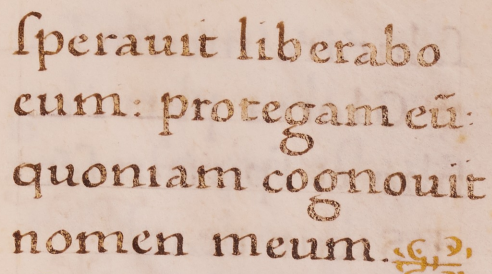 ſperauit liberabo
eum: protegam eū:
quoniam cognouit
nomen meum.